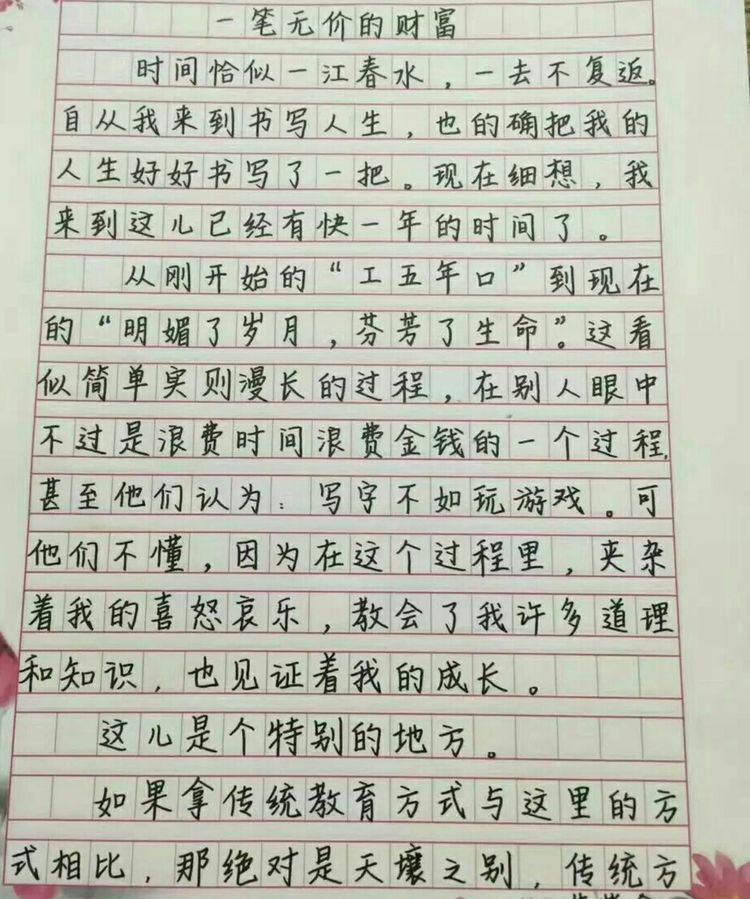 一笔无价的财富
时间恰似一江春水，一去不复返。
自从我来到书写人生，也的确把我的
人生好好书写了一把。现在细想，我
来到这儿已经有快一年的时间了。
从刚开始的“工五年口”到现在
的“明媚了岁月，芬芳了生命”。这看
似简单实则漫长的过程，在别人眼中
不过是浪费时间浪费金钱的一个过程，
甚至他们认为：写字不如玩游戏。可
他们不懂，因为在这个过程里，夹杂
着我的喜怒哀乐，教会了我许多道理
和知识，也见证着我的成长。
这儿是个特别的地方。
如果拿传统教育方式与这里的方
式相比，那绝对是天壤之别，传统方